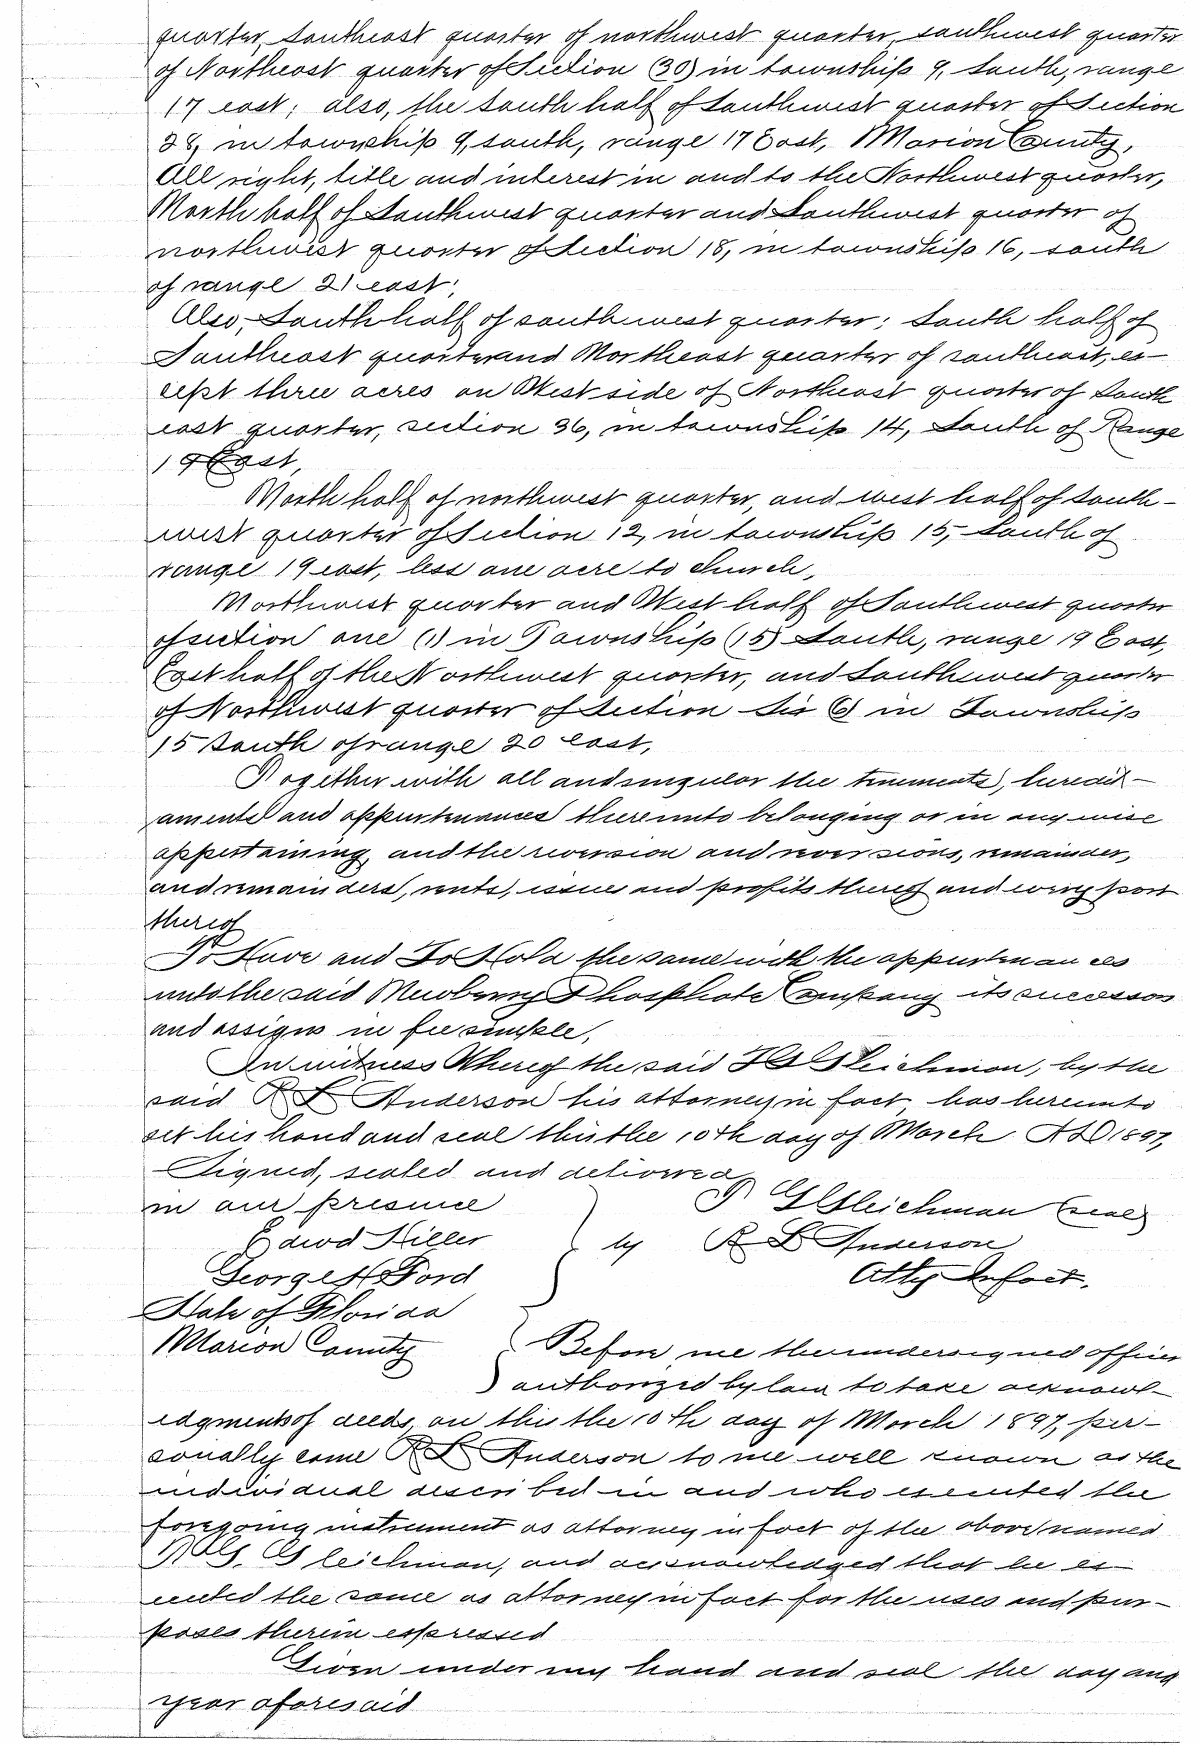 quarter, Southeast quarter of northwest quarter, southwest quarter
of Northeast quarter of Section (30) in township 9, South, range
17 east; also, the South half of Southwest quarter of Section
28, in township 9, south, range 17 East, Marion County,
All right, title and interest in and to the Northwest quarter,
North half of Southwest quarter and Southwest quarter of
northwest quarter of Section 18, in township 16, south
of range 21 east;
Also, South half of south west quarter; South half of
Southeast quarter and Northeast quarter of southeast, ex-
cept three acres on West side of Northeast quarter of South
east quarter, section 36, in township 14, South of Range
19 East,
North half of northwest quarter, and west half of South-
west quarter of Section 12, in township 15, South of
range 19 east, less one acre to church,
Northwest quarter and West half of Southwest quarter
of section one (1) in Township (15) South, range 19 East,
East half of the Northwest quarter, and Southwest quarter
of Northwest quarter of Section Six (6) in Township
15 South of range 20 east,
Together with all and singular the tenements, heredit-
aments and appurtenances thereunto belonging or in anywise
appertaining, and the reversion and reversions, remainder,
and remainders, rents, issues and profits thereof and every part
thereof
To Have and To Hold the same with the appurtenances
unto the said Newberry Phosphate Company its successors
and assigns in fee simple,
In witness Whereof the said Gleichman, by the
said R L Anderson his attorney in fact, has hereunto
set his hand and seal this the 10th day of March A D 1897,
Signed, sealed and delivered
in our presence
G Gleichman (seal)
Edwd Hiller
by R L Anderson
George H Ford
Atty In fact.
State of Florida
Marion County
Before me the undersigned officer
authorized by law to take acknowl-
edgments of deeds, on this the 10th day of March 1897, per-
sonally came R L Anderson to me well known as the
individual described in and who executed the
foregoing instrument as attorney in fact of the above named
G. Gleichman, and acknowledged that he ex-
ecuted the same as attorney in fact for the uses and pur-
poses therein expressed
Given under my hand and seal the day and
year aforesaid